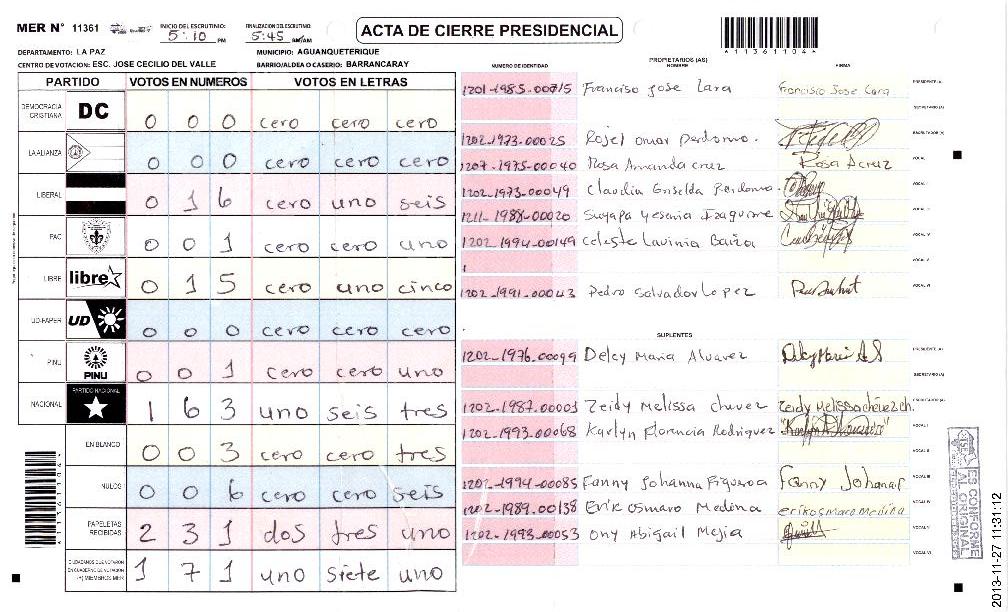 MER N° 11361
INICIO DEL ESCRUTINIO: 5:10 PM
FINALIZACION DEL ESCRUTINIO: 5:45 AM/AM
ACTA DE CIERRE PRESIDENCIAL
4113611044
DEPARTAMENTO: LA PAZ
MUNICIPIO: AGUANQUETERIQUE
CENTRO DE VOTACION: ESC. JOSE CECILIO DEL VALLE
BARRIO/ALDEA O CASERIO: BARRANCARAY
PARTIDO VOTOS EN NUMEROS VOTOS EN LETRAS
DEMOCRACIA CRISTIANA DC 0 0 0 cero cero cero
LA ALIANZA 0 0 0 cero cero cero
LIBERAL 0 1 6 cero uno seis
PAC 0 0 1 cero cero uno
LIBRE libre 0 1 5 cero uno cinco
UD-FAPER UD 0 0 0 cero cero cero
PINU PINU 0 0 1 cero cero uno
NACIONAL PARTIDO NACIONAL 1 6 3 uno seis tres
EN BLANCO 0 0 3 cero cero tres
NULOS 0 0 6 cero cero seis
PAPELETAS RECIBIDAS 2 3 1 dos tres uno
CIUDADANOS QUE VOTARON EN CUADERNO DE VOTACION (+) MIEMBROS MER 1 7 1 uno siete uno
PROPIETARIOS (AS)
NUMERO DE IDENTIDAD NOMBRE FIRMA
1201-1985-00715 Francisco Jose Lara Francisco Jose Lara PRESIDENTE (A)
SECRETARIO (A)
1202-1973-00025 Rojel omar perdomo. ESCRUTADOR (A)
1207-1975-00040 Rosa Amanda cruz Rosa A cruz VOCAL I
1202-1973-00049 Claudia Griselda Perdomo. VOCAL II
1211-1988-00020 Suyapa yesenia Izaguirre VOCAL III
1202-1994-00149 Celeste Lavinia Baiza VOCAL IV
VOCAL V
1202-1991-00043 Pedro Salvador Lopez VOCAL VI
SUPLENTES
1202-1976-00099 Delcy Maria Alvarez PRESIDENTE (A)
SECRETARIO (A)
1202-1987-00003 Zeidy Melissa chevez Zeidy Melissa chévez ch. ESCRUTADOR (A)
1202-1993-00068 Karlyn Florencia Rodriguez VOCAL I
VOCAL II
1201-1994-00085 Fanny Johanna Figueroa Fanny Johana VOCAL III
1202-1989-00138 Erik osmaro Medina erik osmaro medina VOCAL IV
1202-1993-00053 Ony Abigail Mejia VOCAL V
VOCAL VI
ES CONFORME AL ORIGINAL
2013-11-27 11:31:12